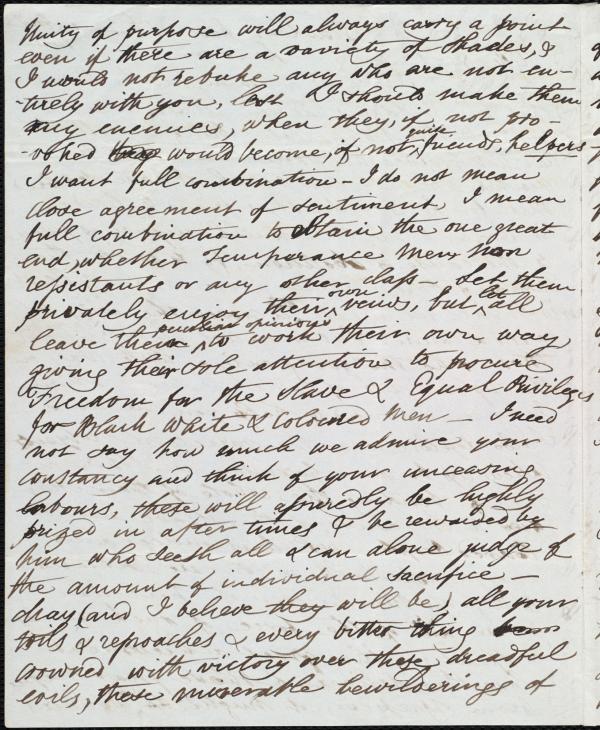 Unity of purpose will always carry a point
even if there are a variety of shades, &
I would not rebuke any who are not en-
tirely with you, lest I should make them
my enemies, when they, if not pro-
-voked would become, if not quite friends, helpers
I want full combination - I do not mean
close agreement of sentiment, I mean
full combination to obtain the one great
end, whether Temperance men non
resistants or any other class - Let them
privately enjoy their own views, but let all
leave their peculiar opinions to work their own way
giving their sole attention to procure
Freedom for the Slave & Equal Privileges
for Black White & Coloured Men - I need
not say how much we admire your
constancy and think of your unceasing
labours, these will assuredly be highly
prized in after times & be rewarded by
him who seeth all & can alone judge of
the amount of individual sacrifice -
May (and I believe they will be) all your
toils & reproaches & every bitter thing
crowned with victory over these dreadful
evils, these miserable bewilderings of